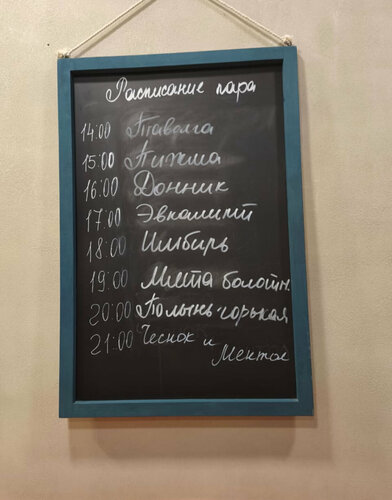 Расписание пара
14:00 Таволга
15:00 Пижма
16:00 Донник
17:00 Эвкалипт
18:00 Имбирь
19:00 Мята болотн.
20:00 Полынь-горькая
21:00 Чеснок и
Ментол